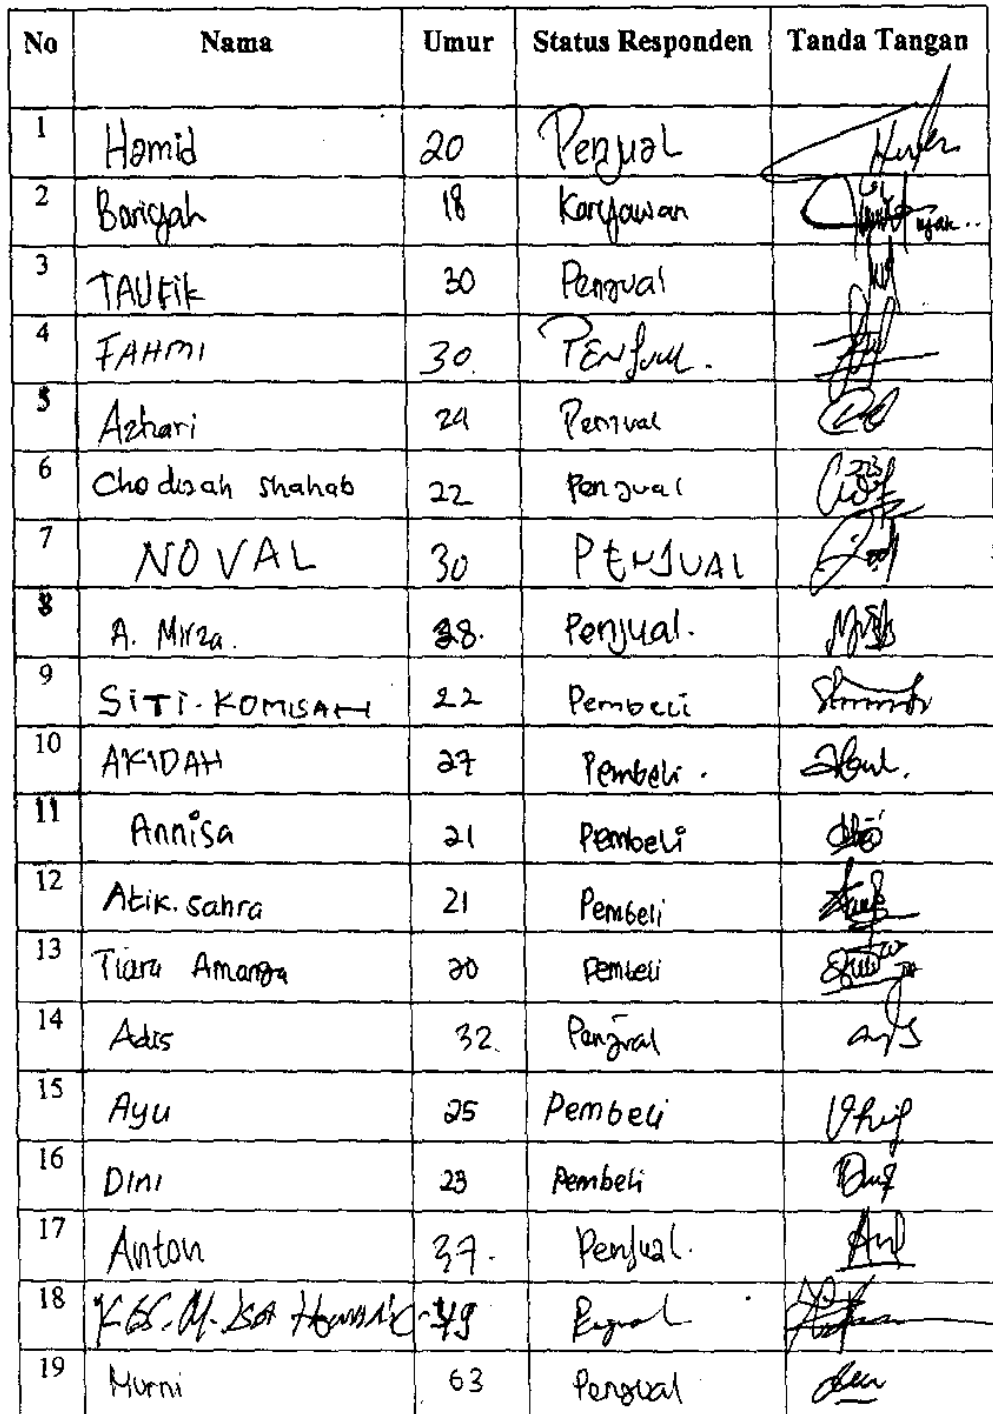 No Nama Umur Status Responden Tanda Tangan
1 Hamid 20 Penjual
2 Bariyah 18 Karyawan
3 TAUFIK 30 Penjual
4 FAHMI 30. PENJual.
5 Azhari 24 Penjual
6 Chodijah Shahab 22 Penjual
7 NOVAL 30 PENJUAL
8 A. Mirza. 28. Penjual.
9 SiTi. KOMISAH 22 Pembeli
10 AKIDAH 27 Pembeli.
11 Annisa 21 Pembeli
12 Atik. Sahra 21 Pembeli
13 Tiara Amanga 20 Pembeli
14 Adis 32. Penjual
15 Ayu 25 Pembeli
16 Dini 23 Pembeli
17 Anton 37. Penjual.
18 49 Penjual
19 Murni 63 Penjual